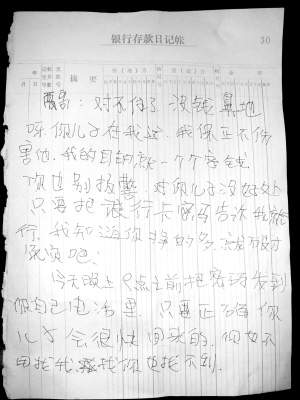 银行存款日记帐 30
摘要
对不住了 没钱
呀你儿子在我这 我保正不伤
害他，我的目的就一个字钱
你也别报警 对你儿子没好处
只要把银行卡密码告诉我就
行，我知道你挣的多，
吧！
今天晚上9点之前把密码发到
你自己电话里，只要正确 你
儿子会很快回来的，你也不
用找我，找你也找不到．